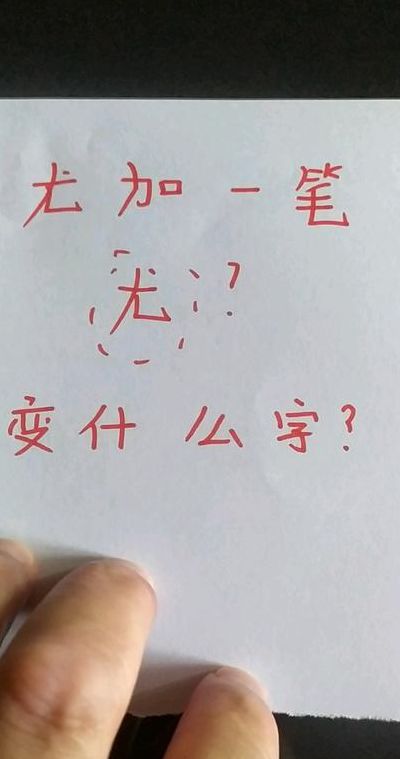 尤加一笔
尤?
变什么字?